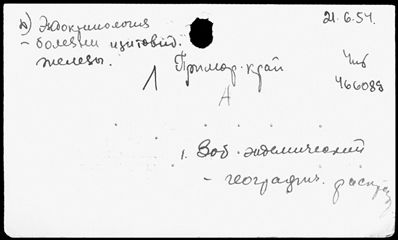 А) Эндокринология
21.6.54.
- болезни щитовид.
железы.
1 Примор. край
Учб
466083
А
1. Зоб. эндемический
- географич. распр